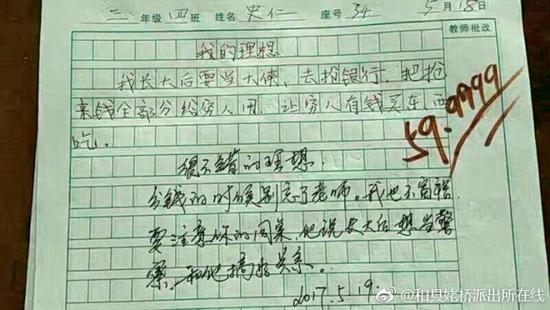 三年级四班 姓名史仁 座号34 5月18日
教师批改
我的理想
我长大后要当大侠,去抢银行,把抢
来钱全部分给穷人用,让穷人有钱买东西
吃.
59.9999
很不错的理想.
分钱的时候别忘了老师。我也不富裕.
要注意你的同桌,他说长大后想当警
察,和他搞好关系。
2017.5.19.
@和县姥桥派出所在线